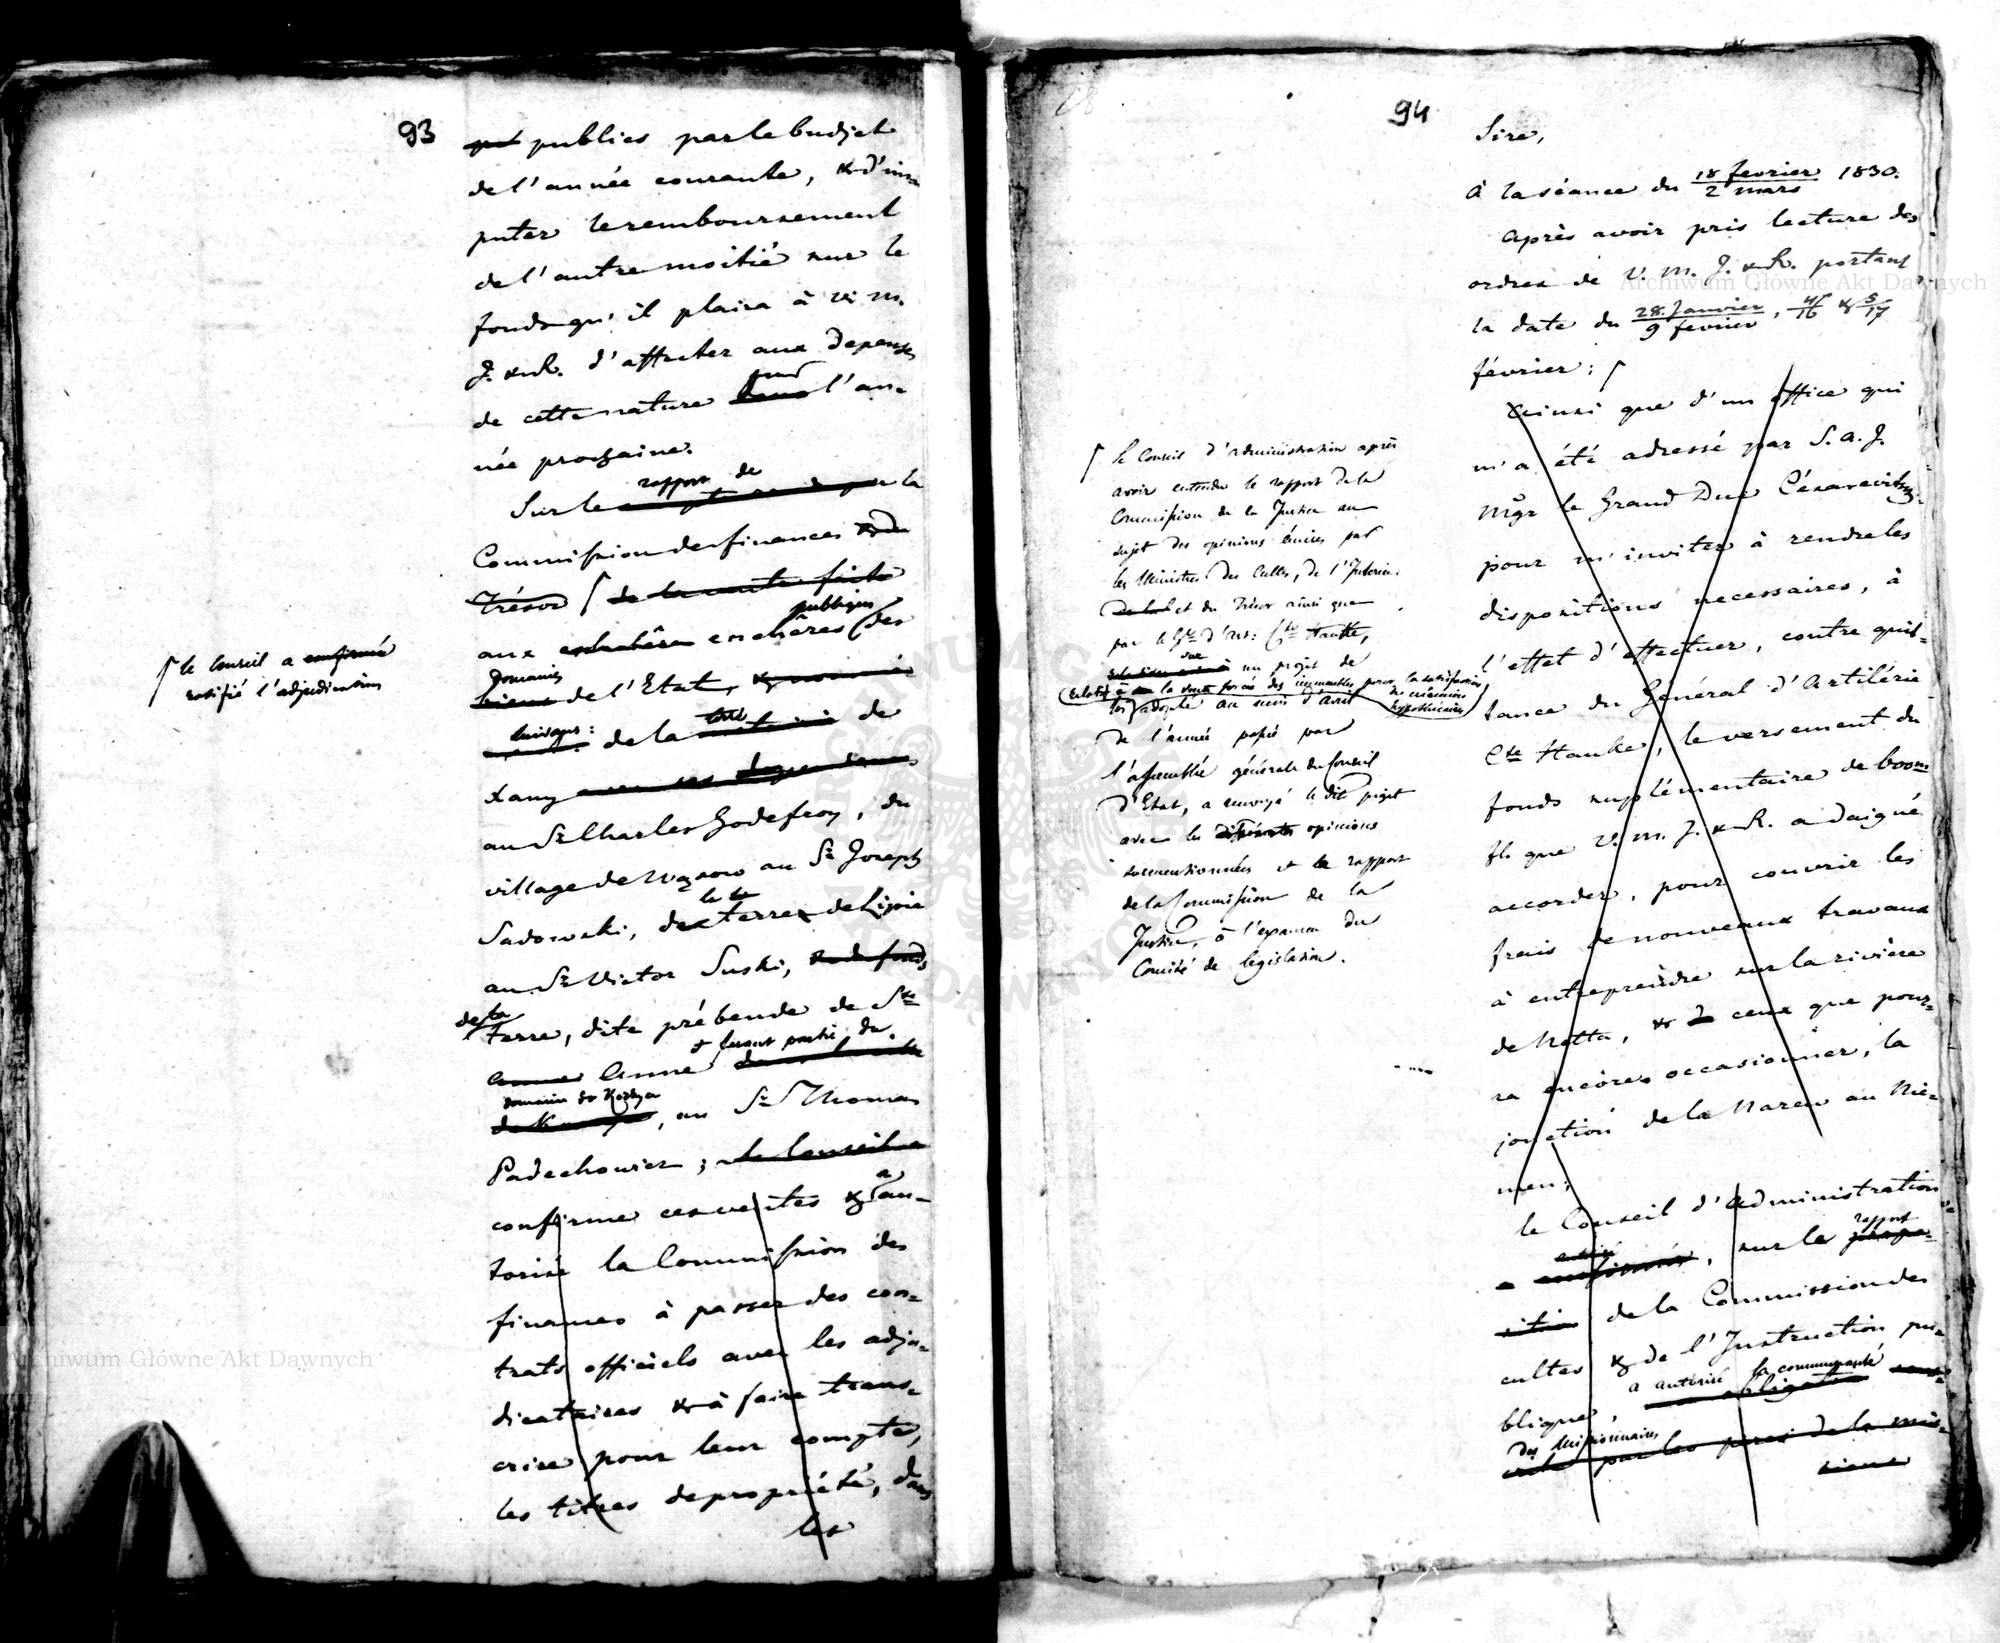 93
publics par le budjet
de l'année courante, & d'im-
puter le remboursement
de l'autre moitié sur le
fonds qu'il plaira à V. M.
J. & R. d'affecter aux Depenses
de cette nature pour l'an-
née prochaine.
Sur le rapport de la
Commission des finances & du
Trésor
aux enchères publiques des
Domaines de l'Etat,
suivans: de la terre de
au Sr. Charles Godefroy, du
village de Wąsow au Sr. Joseph
Sadowski, de la terre de Lipie
au Sr. Victor Suski,
de la terre, dite prébende de Ste.
Anne & faisant partie du
domaine de, au Sr. Thomas
Padechowicz; le Conseil a
confirmé ces ventes & a au-
torisé la Commission des
finances à passer des con-
trats officiels avec les adju-
dicataires & à faire trans-
crire pour leur compte,
les titres de propriété, dans
les
le Conseil a confirmé
ratifié l'adjudication
94
Sire,
à la séance du 18 fevrier / 2 mars 1830.
Après avoir pris lecture des
ordres de V. M. J. & R. portant
la date du 28. Janvier / 9 fevrier, 4/16 & 5/17
février:
Ainsi que d'un office qui
m'a été adressé par S. A. J.
Mgr le Grand Duc Césarevitz,
pour m'inviter à rendre les
dispositions necessaires, à
l'effet d'effectuer, contre quit-
tance du Général d'Artilérie
Cte Hauke, le versement du
fonds suplémentaire de 600m
fl. que V. M. J. & R. a daigné
accorder, pour couvrir les
frais de nouveaux travaux
à entreprendre sur la rivière
de Netta, & ceux que pour-
ra encore occasionner, la
jonction de la Narew au Nie-
men;
le Conseil d'Administration
a, sur le rapport
de la Commission des
cultes & de l'Instruction pu-
blique, a autorisé la communauté
des Missionnaires
par les peres de la mis-
sion
le Conseil d'administration après
avoir entendu le rapport de la
Commission de la Justice au
sujet des opinions émises par
les Ministres des Cultes, de l'Interieur
et du Trésor ainsi que
par le Gal d'Art: Cte Hauke,
sur un projet de
loi adopté au mois d'Avril
relatif à la vente forcée des immeubles pour la satisfaction
des créanciers
hypothécaires
de l'année passée par
l'assemblée générale du Conseil
d'Etat, a renvoyé le dit projet
avec les différentes opinions
susmentionnées & le rapport
de la Commission de la
Justice, à l'examen du
Comité de législation.
Archiwum Główne Akt Dawnych
Archiwum Główne Akt Dawnych